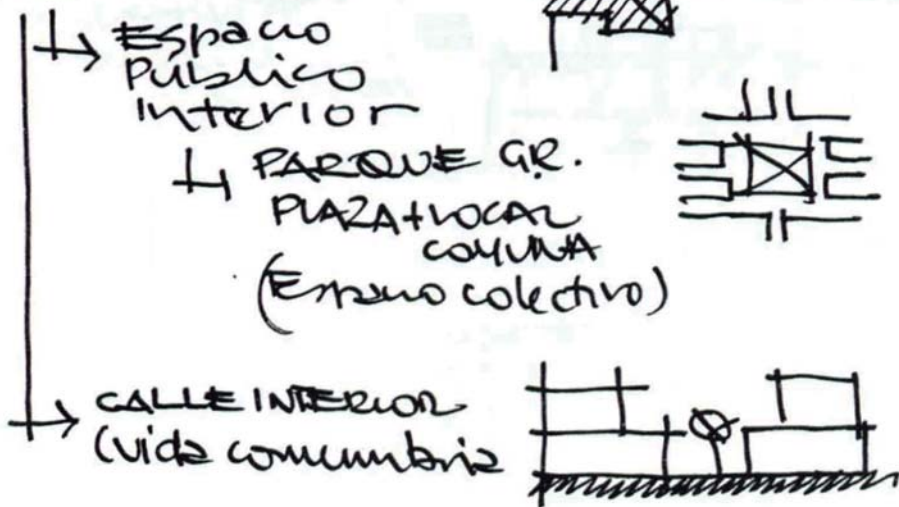 Espacio
Publico
Interior
PARQUE G.R.
PLAZA + LOCAL
COMUNA
(Espacio colectivo)
CALLE INTERIOR
(vida comunitaria